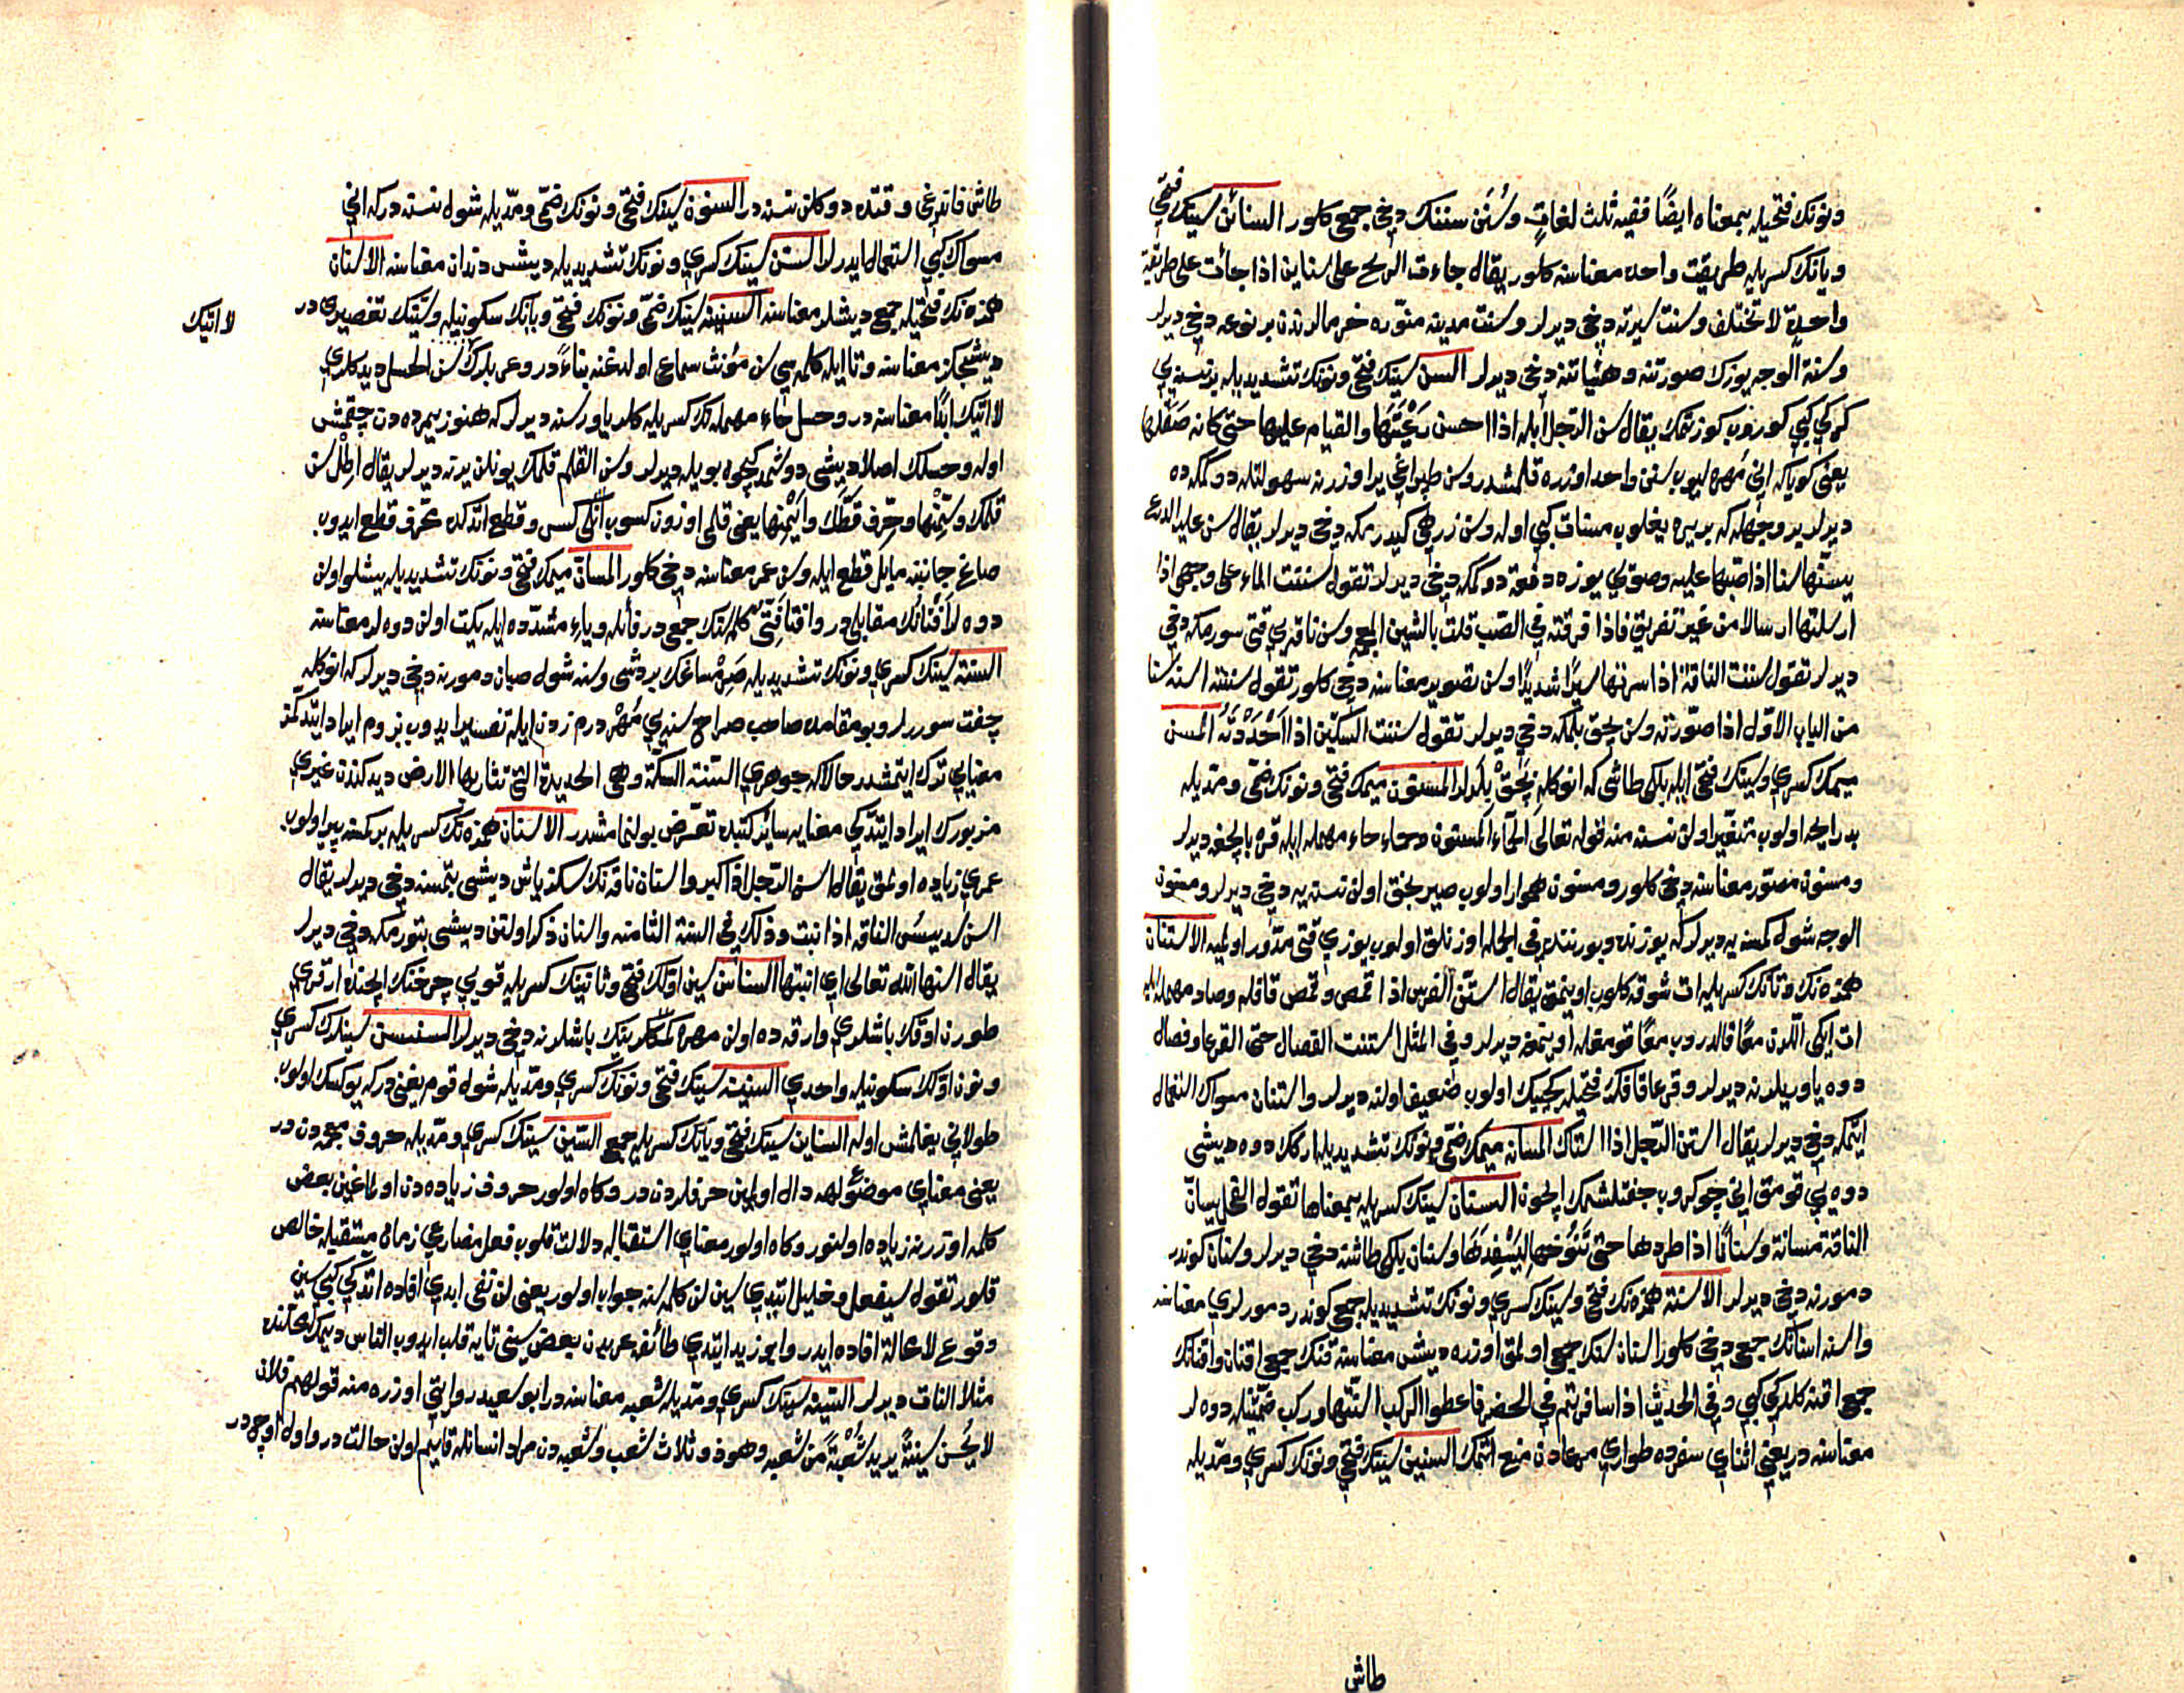 ونونك فتحيله بمعناه ايضًا ففيه ثلث لغاتٍ وسُنَن سنتك دخي جمع كلور السنائن سينك فتحي
ويانك كسريله طريقت واحده معناسنه كلور يقال جاءت الريح على سناين اذا جائت على طريقة
واحدةٍ لا تختلف وسنت سيرته دخي ديرلر وسنت مدينه منوّره خرمالرندن بر نوعه دخي ديرلر
وسنة الوجه يوزك صورتنه وهيئاتنه دخي ديرلر السن سينك فتحي ونونك تشديديله بر نسنه يي
كركي كبي كوروب كوزتمك يقال سن الرجل ابله اذا احسن رَعْيَتَهَا والقيام عليها حتى كانه صَقَلها
يعني كوياكه اني مهره ليوب سنن واحد اوزره قلمشدر وسن طپراغي ير اوزرنه سهولتله دوكمكه ده
ديرلر بر وجهله كه بر يره يغلوب مسنات كبي اوله وسن زرهي كيدرمكه دخي ديرلر يقال سن عليه الدرع
يسنّها سنا اذا صبّها عليه وصويي يوزه دفعة دوكمكه دخي ديرلر تقول سننت الماء على وجهي اذا
ارسلتها ارسالا من غير تفريق فاذا فرقته في الصّب قلت بالشين المعجمه وسن ناقه يي قتي سورمكه دخي
ديرلر تقول سننت الناقة اذا سرتها سيرًا شديدًا وسن تصوير معناسنه دخي كلور تقول سننته اسنه سنا
من الباب الاوّل اذا صوّرته وسن بچق بلمكه دخي ديرلر تقول سننت السكّين اذا اَحْدَدْتَهُ المسن
ميمك كسري وسينك فتحي ايله بلكي طاشي كه انوكله بچَقْ بِلَرلر المسنون ميمك فتحي ونونك ضمّي ومدّيله
بد رايحه اولوب متغيّر اولن نسنه منه قوله تعالى الحمأء المسنون وحماء حاء مهمله ايله قره بالچغه ديرلر
ومسنون مصوّر معناسنه دخي كلور ومسنون هموار اولوب صيرلجنق اولن نسنه يه دخي ديرلر ومسنون
الوجه شول كمسنه يه ديرلر كه يوزنده وبورننده في الجمله اوزنلق اولوب يوزي قتي مدّور اولميه الاستنان
همزه نك وتانك كسريله ات شوقه كلوب اوينمق يقال استنّ الفرس اذا قمص وقمص قافله وصاد مهمله ايله
ات ايكي اللرن معًا قالدروب معًا قومغله اوينمغه ديرلر وفي المثل استنت الفصال حتى القرعا وفصال
دوه ياوريلرنه ديرلر وقرعا قافك فتحيله كچيك اولوب ضعيف اولنه ديرلر واستنان مسواك استعمال
ايتمكه دخي ديرلر يقال استن الرّجل اذا استاك المسانه ميمك ضمّي ونونك تشديديله اركك دوه ديشي
دوه يي قومق اني چوكروب جفتلشمك ايچون السنان سينك كسريله بمعناها تقول الفحل يسانّ
الناقة مسانة وسنانًا اذا طردها حتى تَنَوُّخِهَا لِيَسْفِدَهَا وسنان بلكي طاشنه دخي ديرلر وسنان كوندر
دمورنه دخي ديرلر الاسنة همزه نك فتحي وسينك كسري ونونك تشديديله جمع كوندر دمورلري معناسنه
واسنه اسنانك جمعي دخي كلور اسنان سنك جمعي اولمق اوزره ديشلر معناسنه قنك جمعي اقنان واقنانك
جمعي اقنه كلدكي كبي وفي الحديث اذا سافرتم في الخصب فاعطوا الركب اسنّتها وركب ضمّتينله دوه لر
معناسنه در يعني اثناي سفرده طواري مرعادن منع ايتمك السنين سينك فتحي ونونك كسري ومدّيله
طاش
طاش قازيغي وقتده دوكلن نسنه در السنون سينك فتحي ونونك ضمّي ومدّيله شول نسنه دركه اني
مسواك كبي استعمال ايدرلر السنن سينك كسري ونونك تشديديله ديش دندان معناسنه الاسنان
همزه نك فتحيله جمع ديشلر معناسنه السنينه سينك ضمّي ونونك فتحي ويانك سكونيله وسنّك تصغيريدر
ديشجكز معناسنه وتا ايله كلمه سي سن مؤنث سماعي اولدغنه بناءً در وعربلرك سن الحسل ديدكلري
لا اتيك
لا اتيك ابدًا معناسنه در وحسل حاء مهمله نك كسريله كلر ياوريسنه ديرلر كه هنوز يمرده دن چقمش
اوله وحسلك اصلا ديشي دوشمدكچون بويله ديرلر وسن القلم قلمك يونلن يرنه ديرلر يقال اطل سن
قلمك وسَمِّنْها وحرّف قَطَّتَك وأَيْمِنها يعني قلمي اوزون كسوب انكي كس وقطع ايتدكده محرّف قطع ايدوب
صاغ جانبنه مايل قطع ايله وسن عمر معناسنه دخي كلور المسانّ ميمك فتحي ونونك تشديديله يشلو اولن
دوه لر افتانك مقابلي در وافتا فَتِيّ كلمه سنك جمعي در فا ايله وياء مشدّده ايله يكت اولن دوه لر معناسنه
السنة سينك كسري ونونك تشديديله صَرِمْساغك بر دشي وسنه شول صبان دمورنه دخي ديرلر كه انوكله
چفت سوررلر وبو مقامده صاحب صراح سنه يي مُهْر درم زدن ايله تفسير ايدوب بزوم ايراد ايتدكمز
معنايي ترك ايتمشدر حالاكه جوهري السّنة السكّة وهي الحديدة التي تثار بها الارض ديدكندن غيري
مزبورك ايراد ايتدكي معنايه سائر كتبده تعرّض بولنمامشدر الاسنان همزه نك كسريله بر كمسنه پير اولوب
عمري زياده اولمق يقال اسن الرّجل اذا كبر واسنان ناقه نك سكز ياش ديشي بتمسنه دخي ديرلر يقال
اسن سديس الناقه اذا نبت وذلك في السنة الثامنه واسنان ذكر اولنن ديشي بتورمكه دخي ديرلر
يقال اسنها الله تعالى اي انبتها السناسن سين اوّلك فتحي وثانينك كسريله قويي چرخنك ايچنده ارقري
طورن اوقك باشلري وارقه ده اولن مهره كمكلرينك باشلرنه دخي ديرلر السنسن سينلرك كسري
ونون اوّلك سكونيله واحدي السنينه سينك فتحي ونونك كسري ومدّيله شول قوم يغني دركه يوكسك اولوب
طولاني يغلمش اوله السناين سينك فتحي ويانك كسريله جمع السّين سينك كسري ومدّيله حروف معجمه دن در
يعني معناي موضوع لهه دال اولمين حرفلردن در وكاه اولور حروف زياده دن اولماغين بعض
كلمه اوزرنه زياده اولنور وكاه اولور معناي استقباله دلالت قلوب فعل مضارعي زمان مستقبله خالص
قلور تقول سيفعل وخليل ايتدي سين لن كلمه سنه جواب اولور يعني لن نفي ابدي افاده ايتدكي كبي سين
وقوع لا محالة افاده ايدر وابو زيد ايتدي طائفه عربدن بعض سيني تايه قلب ايدوب الناس ديمك محلنده
مثلا النات ديرلر السّينه سينك كسري ومدّيله شعبه معناسنه در ابو سعيد روايتي اوزره منه قولهم فلان
لا يُحسن سينةً يريد شُعْبةً من شعبه وهو ذو ثلاث شعب وشعبه دن مراد انسانله قايم اولن حالت در واول اوچدر